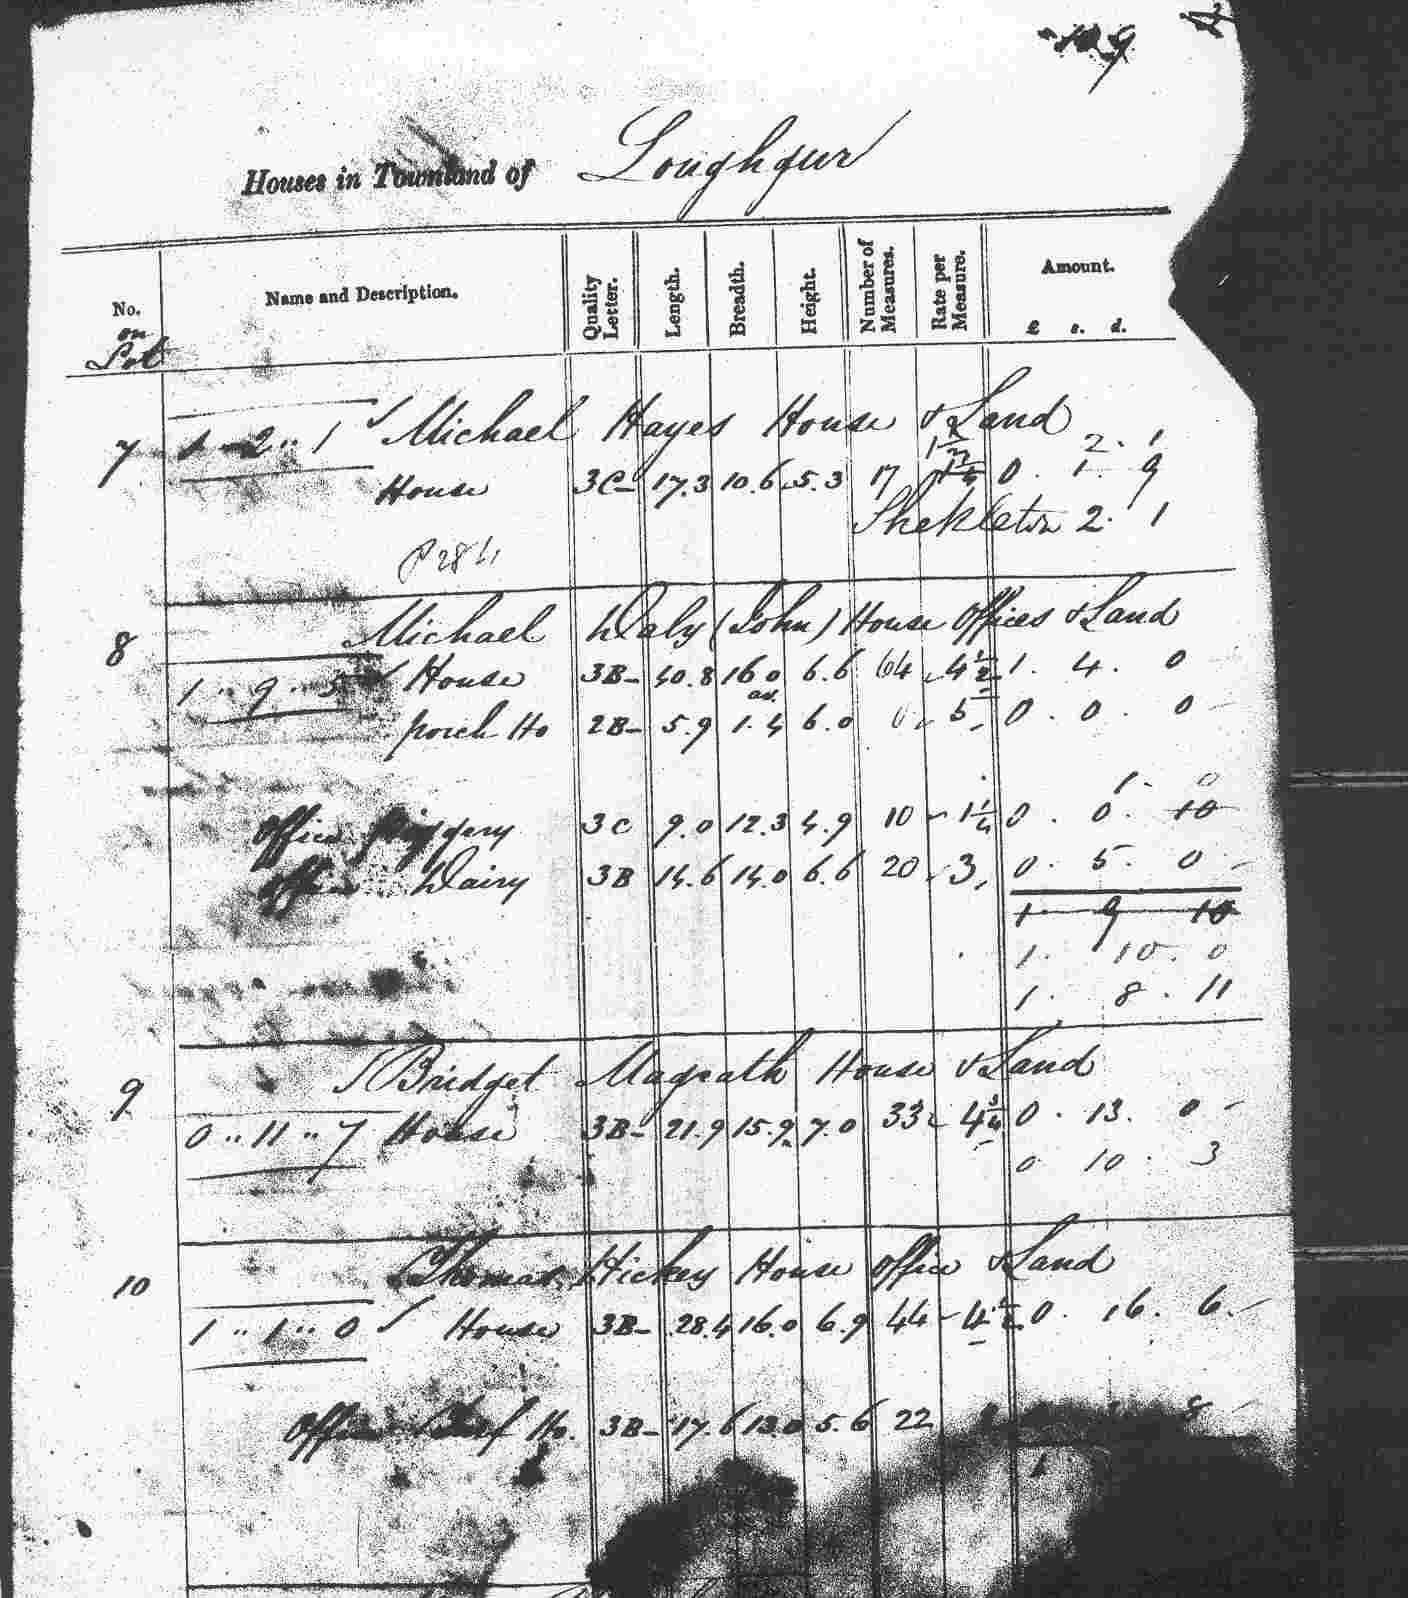 109
Houses in Townland of Loughgur
No. on Lot
Name and Description.
Quality Letter.
Length.
Breadth.
Height.
Number of Measures.
Rate per Measure.
Amount.
£ s. d.
7 1 " 2 " 1 Michael Hayes House & Land
1 1/2 2. 1
House 3C- 17.3 10.6 5.3 17 1 1/4 0. 1. 9
Shekleton 2. 1
P 284
8 Michael Daly (John) House Offices & Land
1 " 9 " 5 House 3B- 40.8 16.0 6.6 64 4 1/2 1. 4. 0
av.
porch Ho 2B- 5.9 1.4 6.0 5 0. 0. 0
1. 0
Office Piggery 3C 9.0 12.3 4.9 10 1 1/4 0. 0. 10
Office Dairy 3B 14.6 14.0 6.6 20 3 0. 5. 0
1. 9 10
1. 10. 0
1. 8. 11
9 Bridget Magrath House & Land
0 " 11 " 7 House 3B- 21.9 15.9 7.0 33 4 3/4 0. 13. 0
0 10. 3
10 Thomas Hickey House Office & Land
1 " 1 " 0 House 3B- 28.4 16.0 6.9 44 4 1/2 0. 16. 6
Office Ho. 3B- 17.6 13.0 5.6 22 8